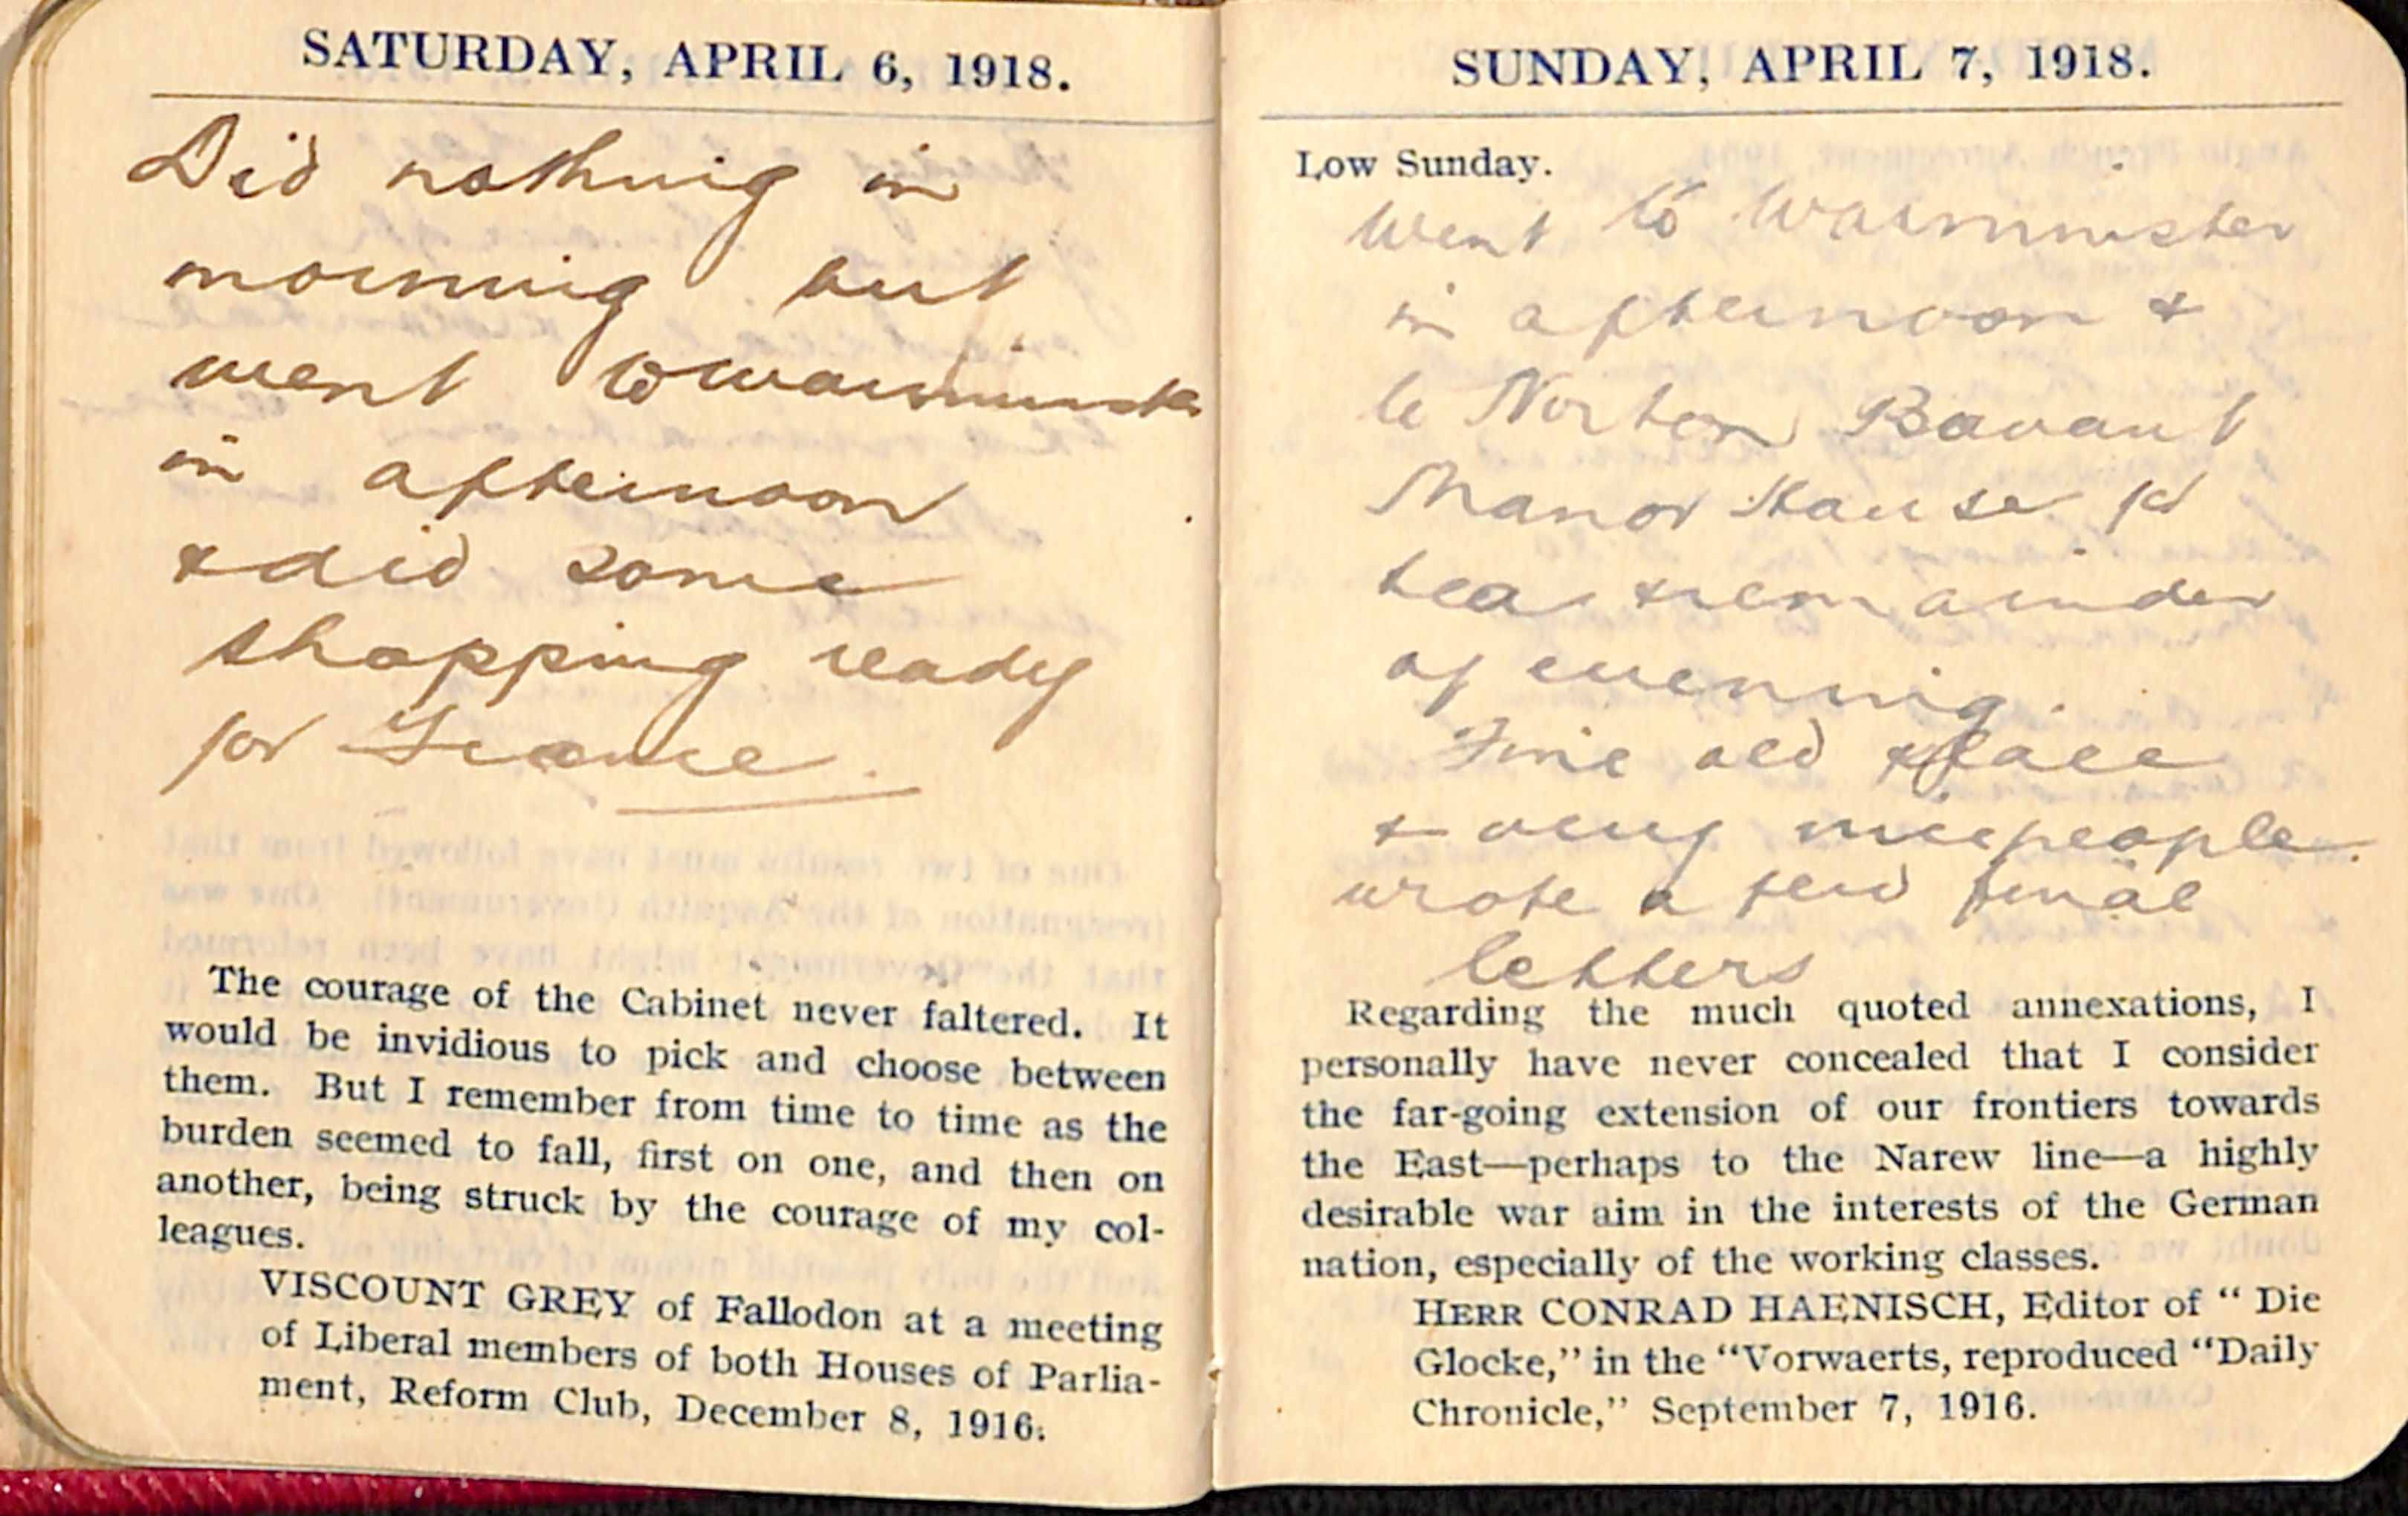 SATURDAY, APRIL 6, 1918.
Did nothing in
morning but
went to Warminster
in afternoon
& did some
shopping ready
for France.
The courage of the Cabinet never faltered. It
would be invidious to pick and choose between
them. But I remember from time to time as the
burden seemed to fall, first on one, and then on
another, being struck by the courage of my col-
leagues.
VISCOUNT GREY of Fallodon at a meeting
of Liberal members of both Houses of Parlia-
ment, Reform Club, December 8, 1916.
SUNDAY, APRIL 7, 1918.
Low Sunday.
Went to Warminster
in afternoon &
to Norton Bavant
Manor House for
tea & remainder
of evening.
Fine old place
& very nice people.
wrote a few final
letters
Regarding the much quoted annexations, I
personally have never concealed that I consider
the far-going extension of our frontiers towards
the East—perhaps to the Narew line—a highly
desirable war aim in the interests of the German
nation, especially of the working classes.
HERR CONRAD HAENISCH, Editor of “ Die
Glocke,” in the “Vorwaerts, reproduced “Daily
Chronicle,” September 7, 1916.